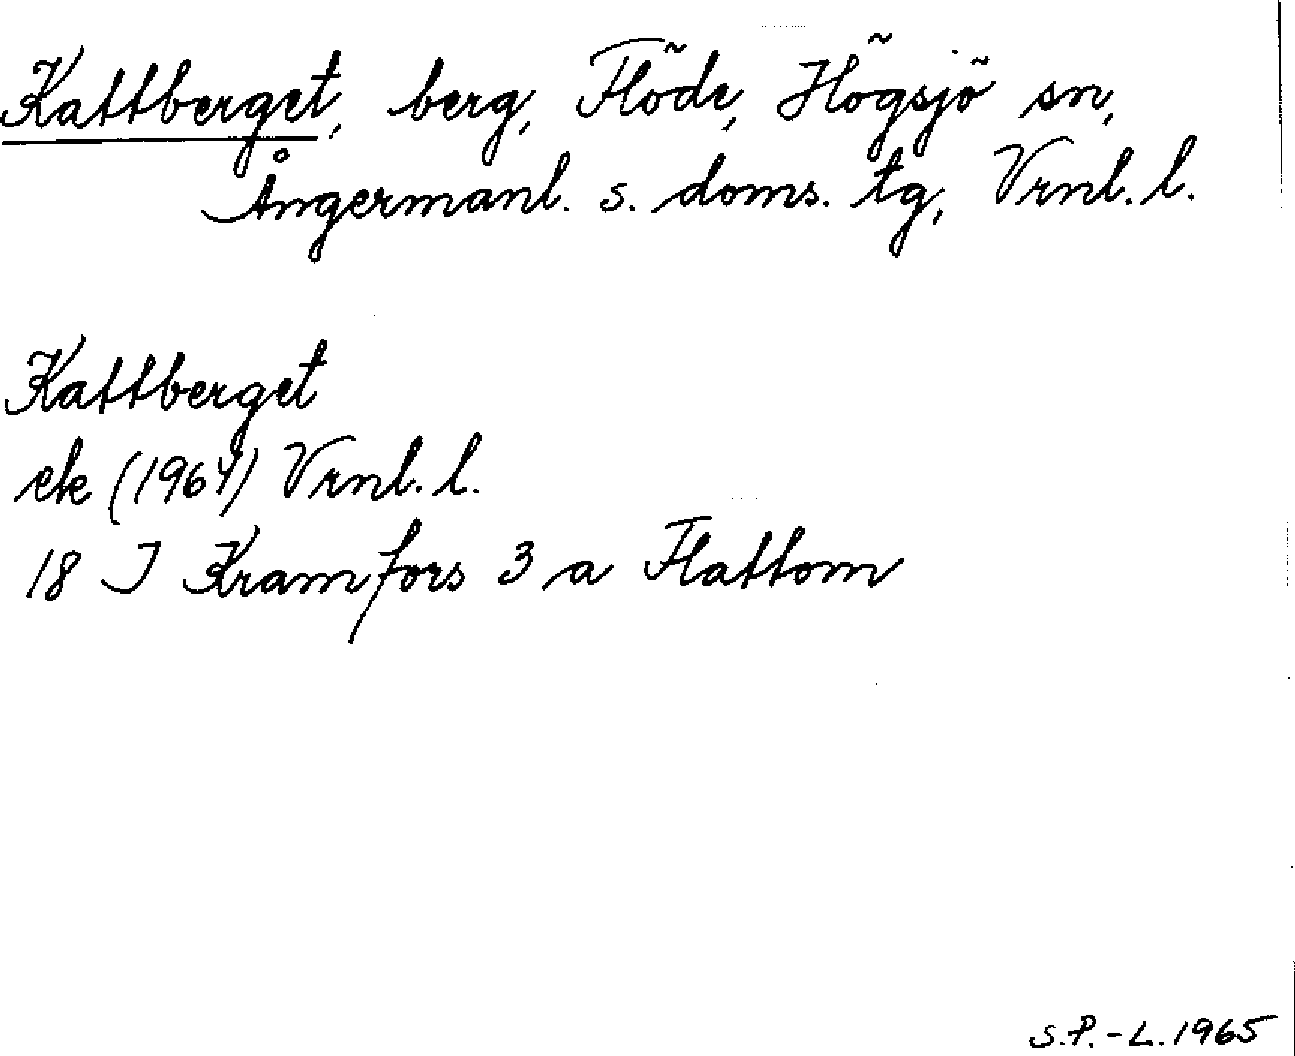 Kattberget, berg, Flöde, Högsjö sn,
Ångermanl. s. doms. tg, Vrnl. l.
Kattberget
ek (1964) Vrnl. l.
18 I Kramfors 3 a Flattom
S.P.-L. 1965